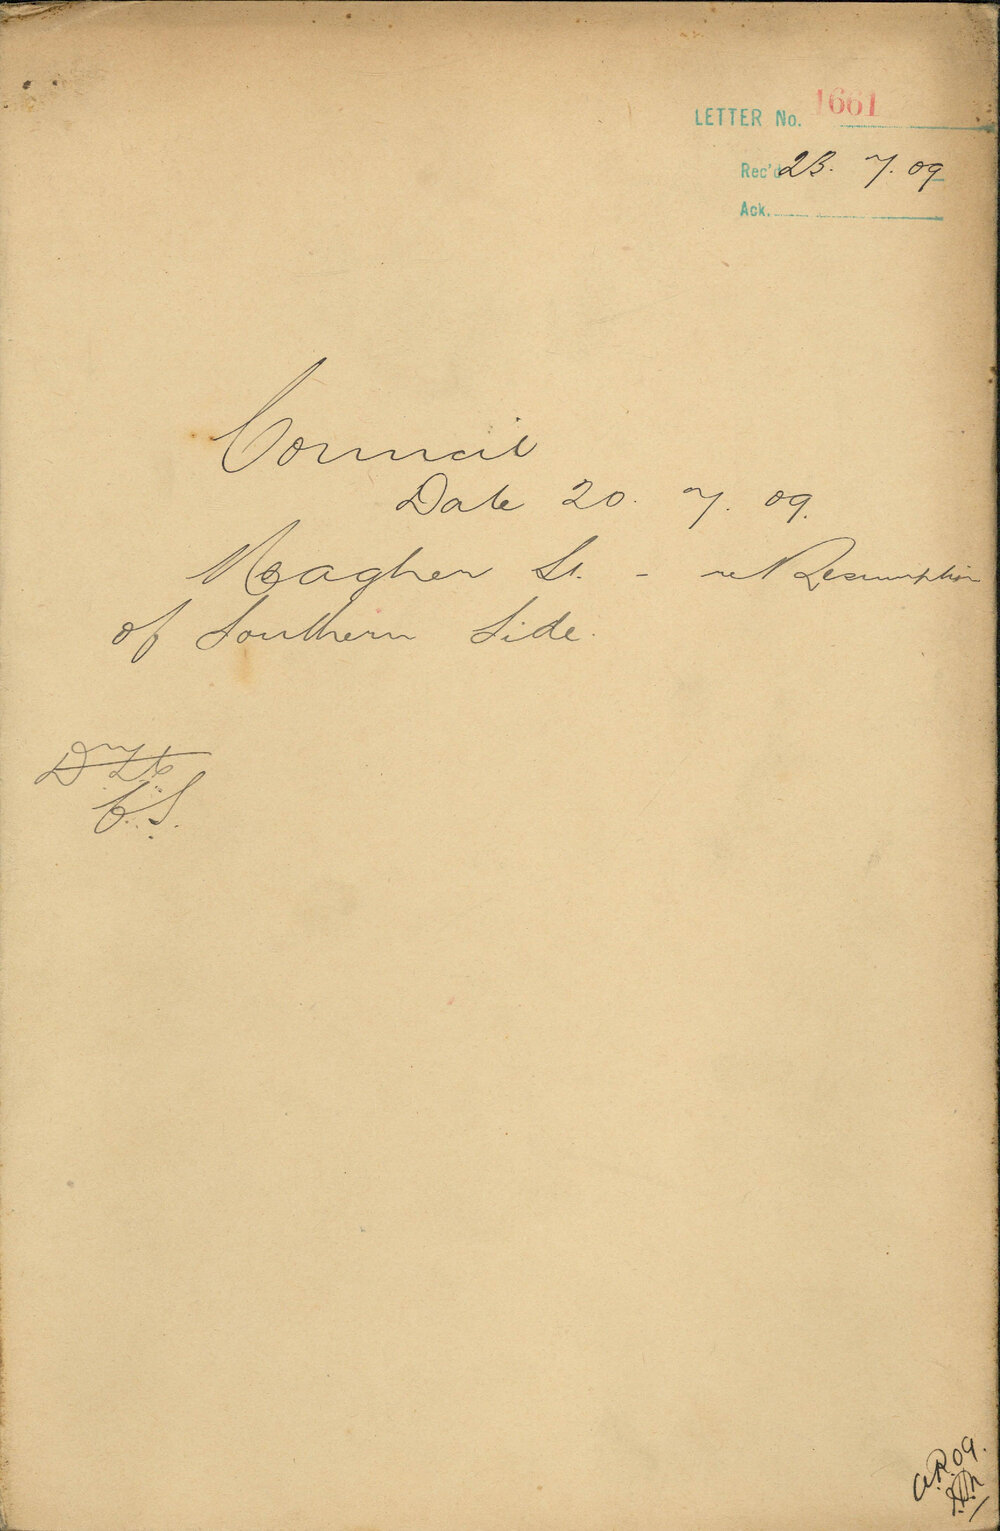 LETTER No. 1661
Rec'd 23. 7. 09
Ack.
Council
Date 20. 7. 09.
Meagher St. - re Resumption
of Southern Side.
C.S.